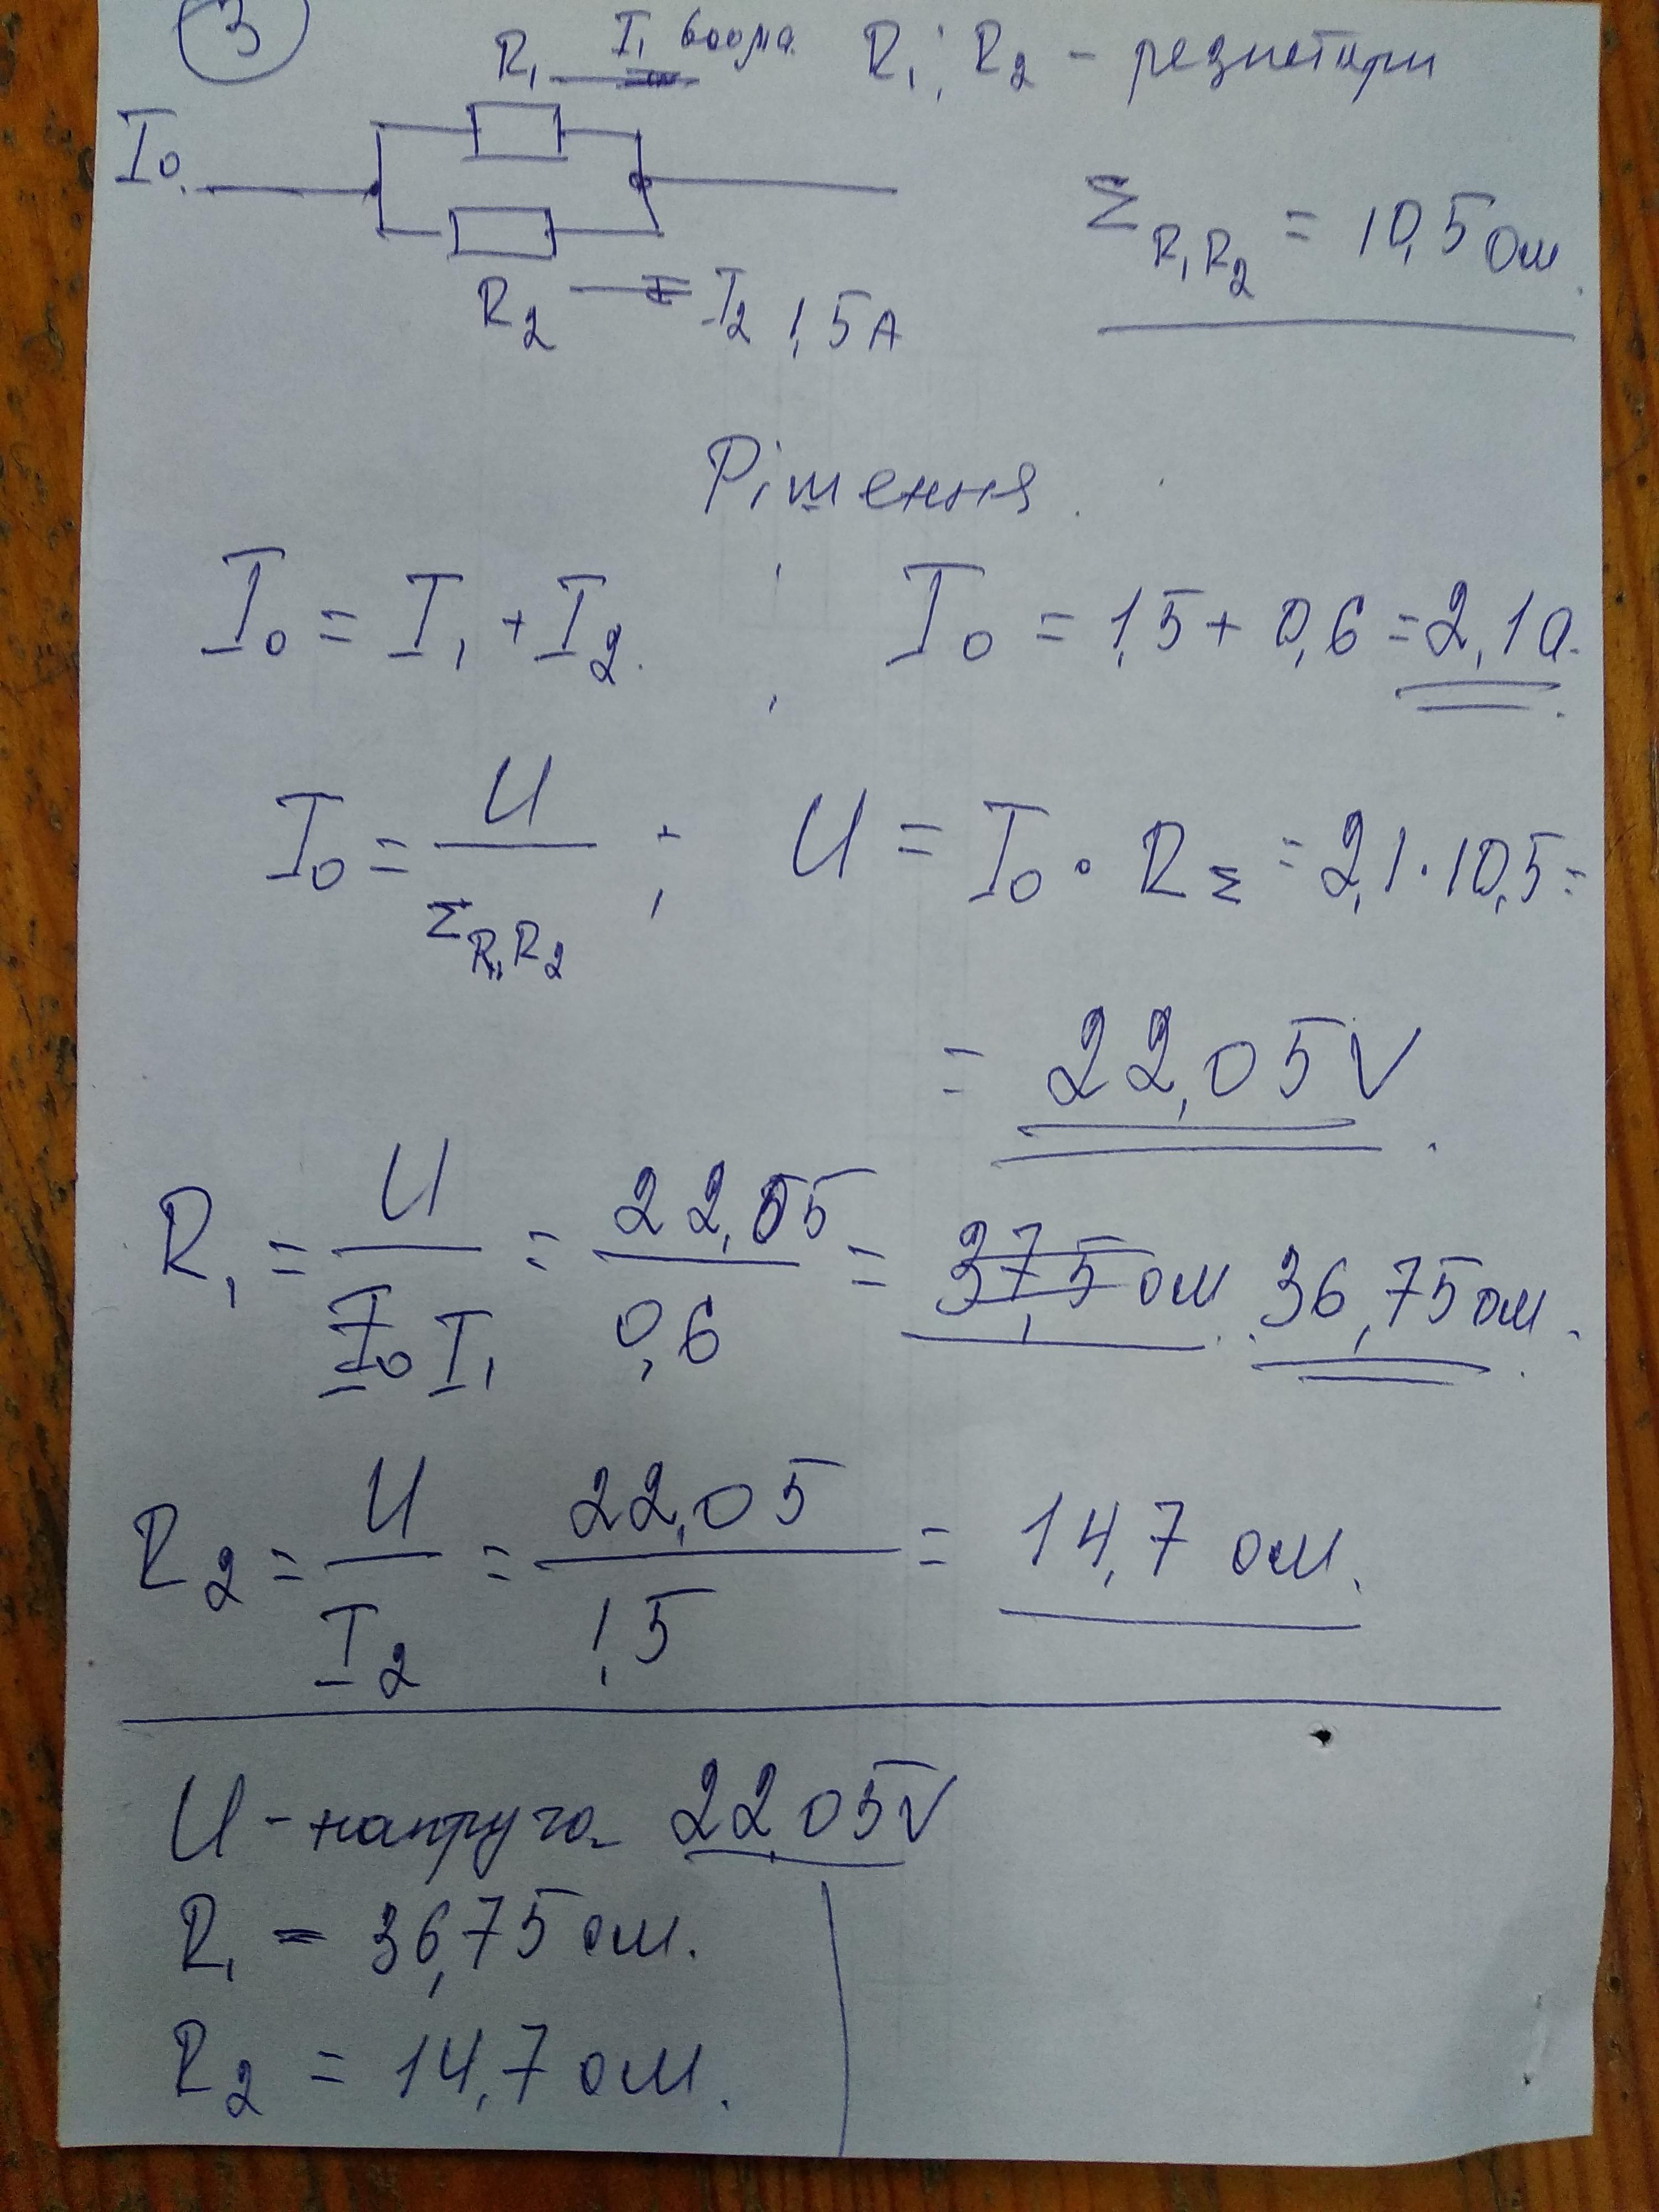 3
R₁ I₁ R₁; R₂ - резистори
I₀
Σ R₁R₂ = 10,5 ом
R₂ I₂ 1,5 А
Рішення.
I₀ = I₁ + I₂ ; I₀ = 1,5 + 0,6 = 2,1 а.
I₀ = U / Σ R₁R₂ ; U = I₀ · R Σ = 2,1 · 10,5 =
= 22,05 V
R₁ = U / I₁ = 22,05 / 0,6 = 37,5 ом 36,75 ом.
R₂ = U / I₂ = 22,05 / 1,5 = 14,7 ом.
U - напруга 22,05 V
R₁ = 36,75 ом.
R₂ = 14,7 ом.